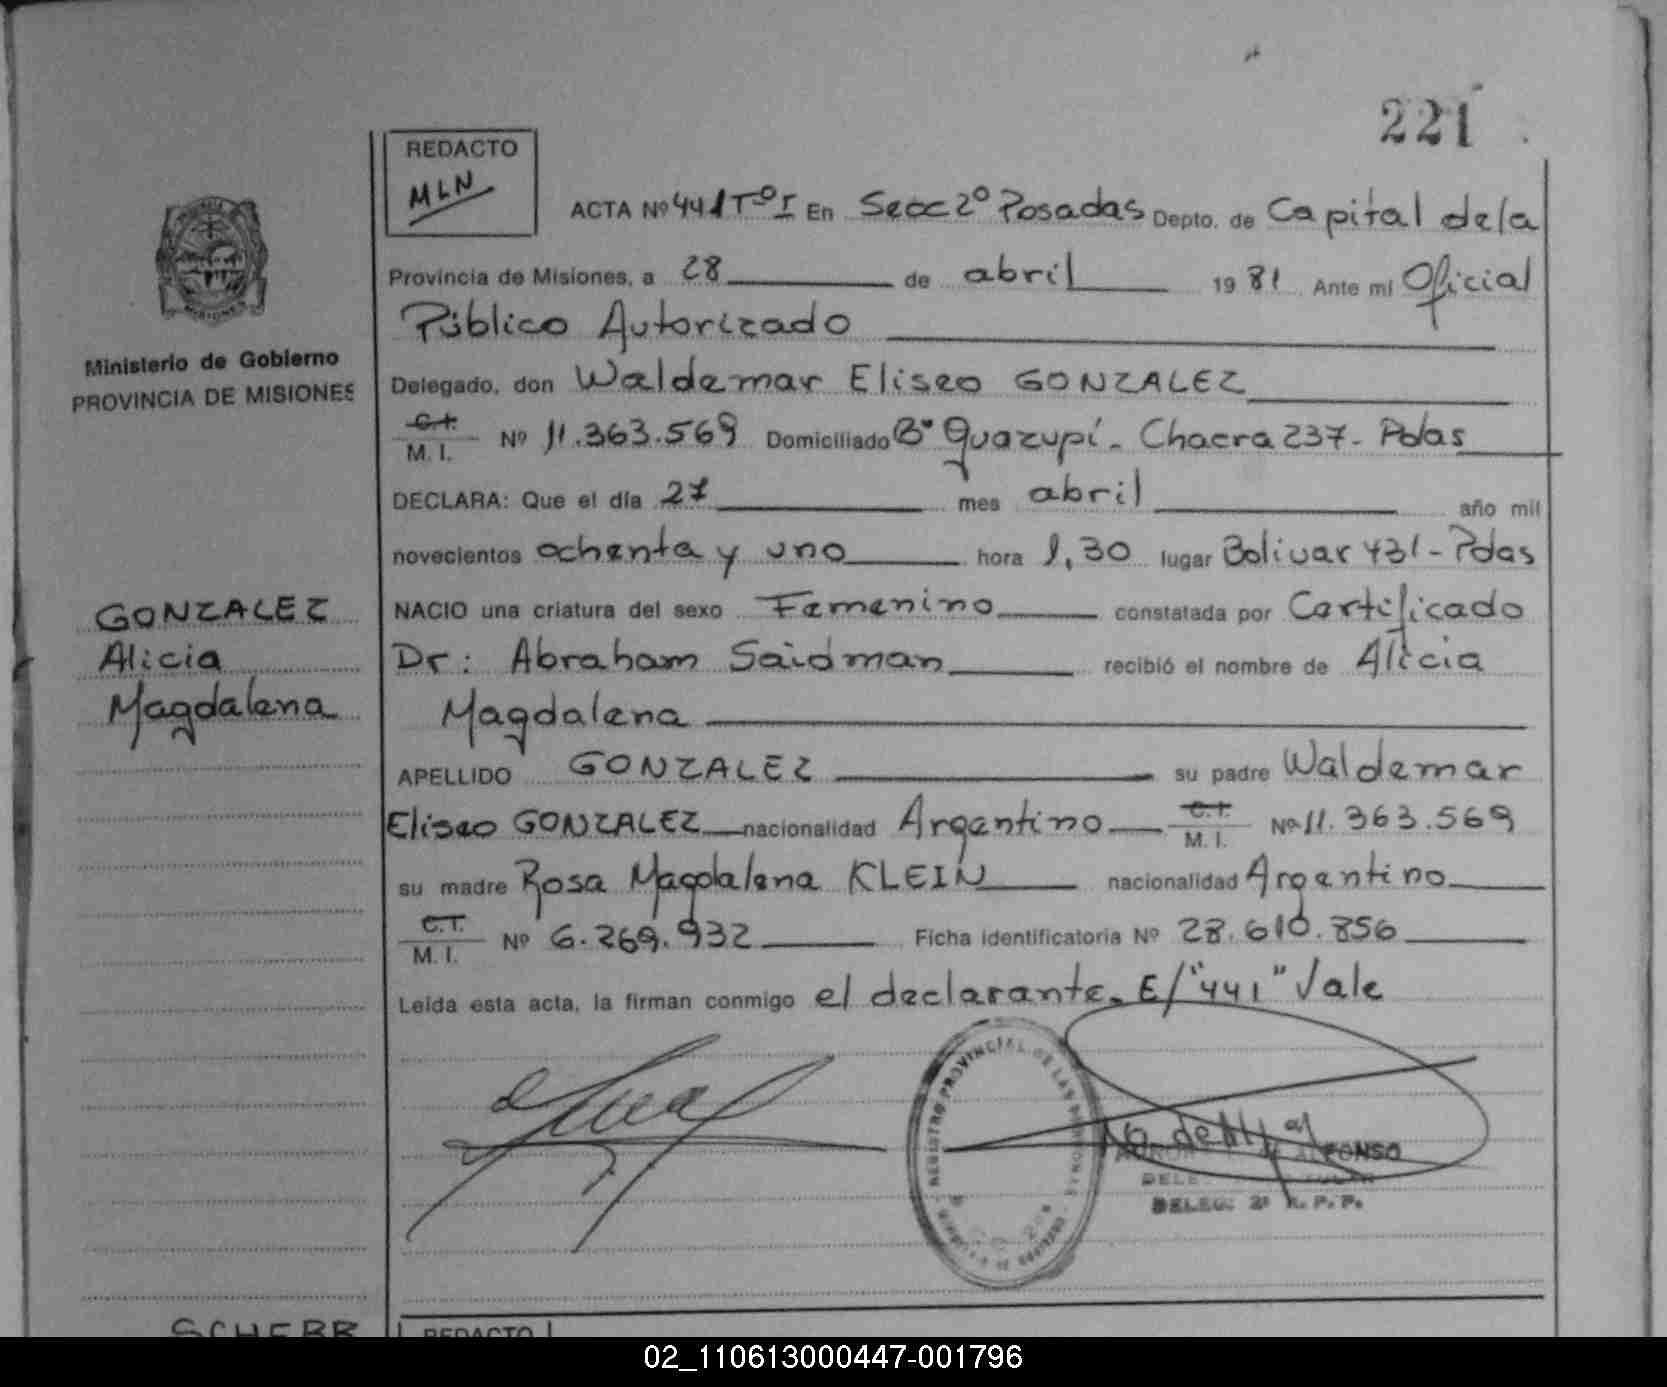 221
REDACTO
MLN
ACTA Nº 441 Tº I En Secc 2º Posadas Depto. de Capital de la
Provincia de Misiones, a 28 de abril 1981 Ante mi Oficial
Público Autorizado
Ministerio de Gobierno
PROVINCIA DE MISIONES
Delegado, don Waldemar Eliseo GONZALEZ
C.I.
M. I. Nº 11.363.569 Domiciliado Bº Guazupí - Chacra 237 - Pdas
DECLARA: Que el día 27 mes abril año mil
novecientos ochenta y uno hora 1,30 lugar Bolivar 431 - Pdas
GONZALEZ
Alicia
Magdalena
NACIO una criatura del sexo Femenino constatada por Certificado
Dr: Abraham Saidman recibió el nombre de Alicia
Magdalena
APELLIDO GONZALEZ su padre Waldemar
Eliseo GONZALEZ nacionalidad Argentino C.I. M. I. Nº 11.363.569
su madre Rosa Magdalena KLEIN nacionalidad Argentino
C.I.
M. I. Nº 6.269.932 Ficha identificatoria Nº 28.610.856
Leída esta acta, la firman conmigo el declarante. E/"441" Vale
REGISTRO PROVINCIAL DE LAS PERSONAS
ALFONSO
DELEG. 2ª R. P. P.
SCHERR
REDACTO
02_110613000447-001796